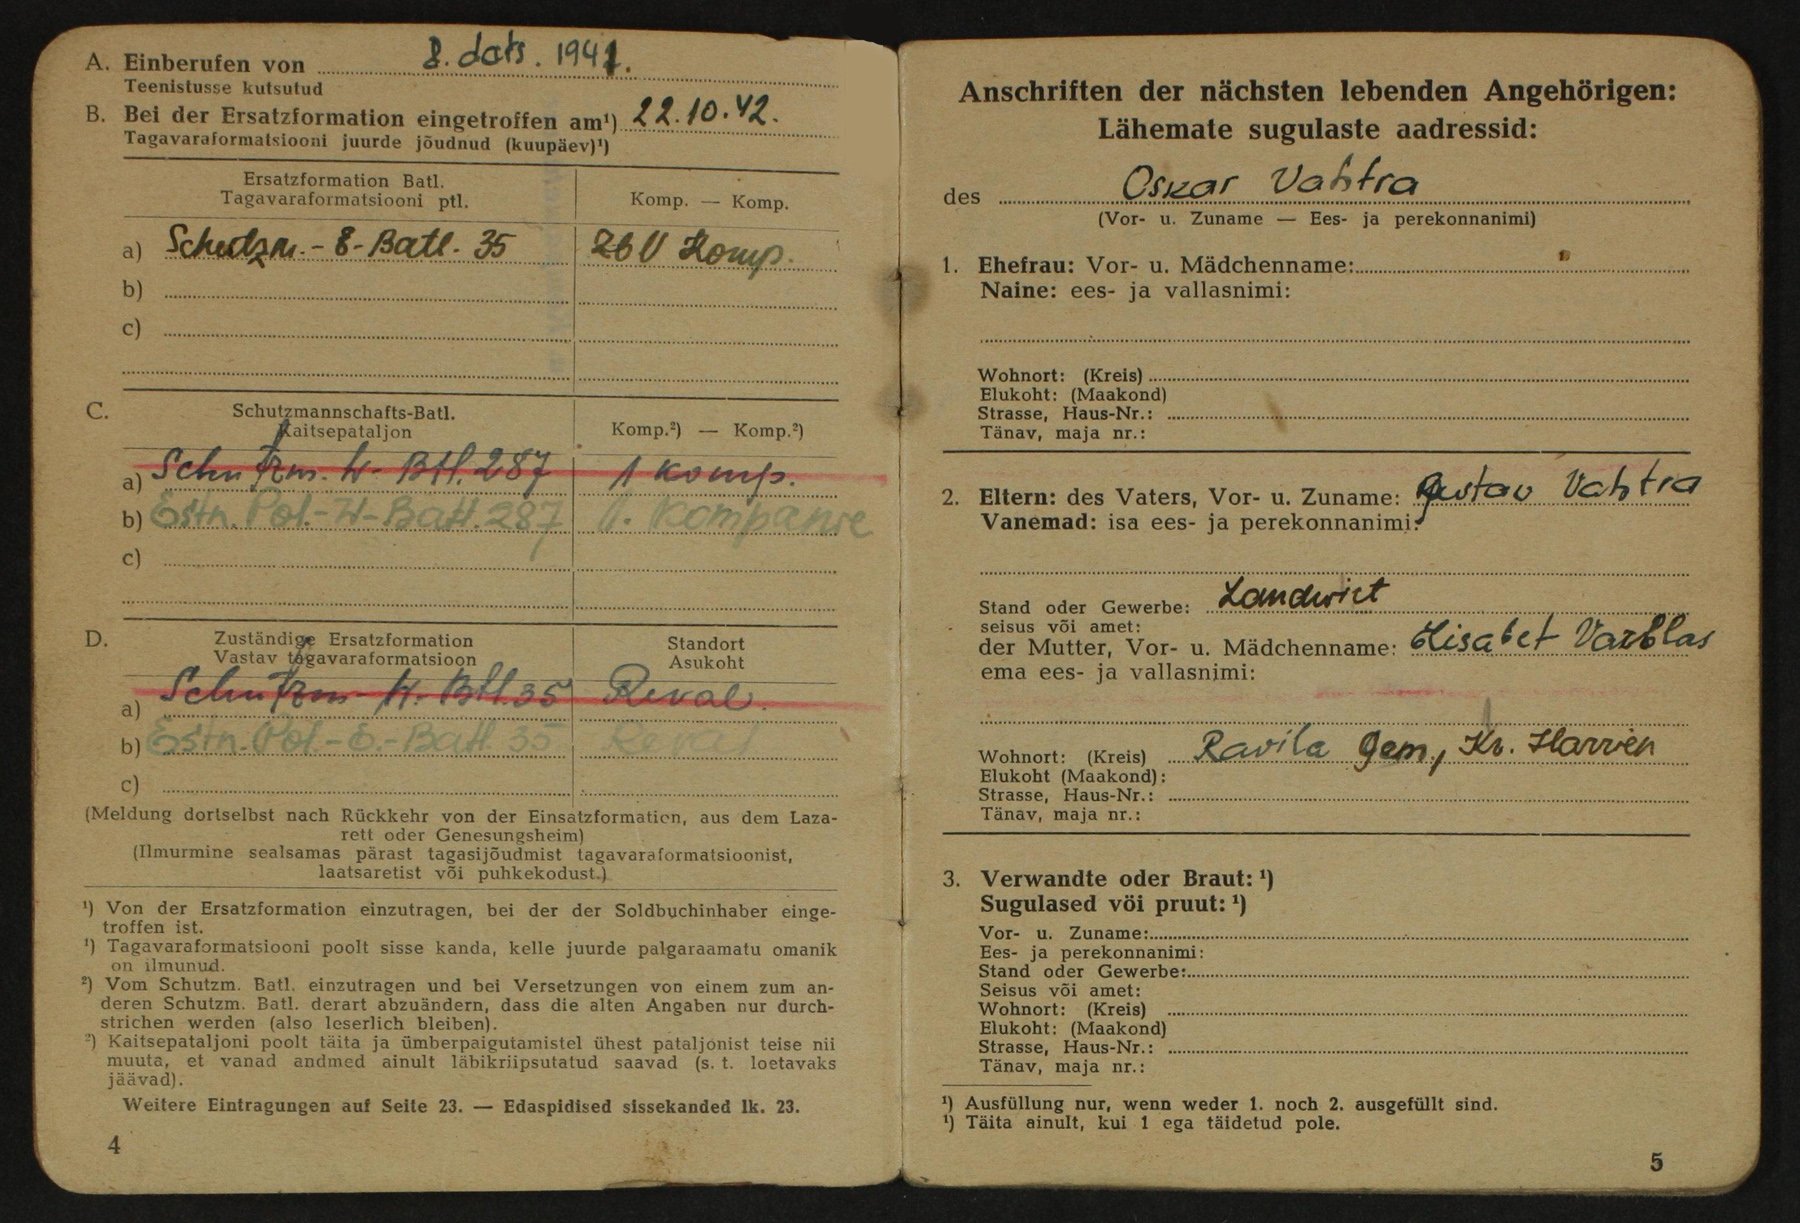 A. Einberufen von 8. dets. 1941.
Teenistusse kutsutud
B. Bei der Ersatzformation eingetroffen am¹) 22.10.42.
Tagavaraformatsiooni juurde jõudnud (kuupäev)¹)
Ersatzformation Batl.
Tagavaraformatsiooni ptl.
Komp. — Komp.
a) Schutzm.-E-Batl. 35 Komp.
b)
c)
C. Schutzmannschafts-Batl.
Kaitsepataljon
Komp.²) — Komp.²)
a) Schutzm. W- Btl. 287 1 komp.
b) Estn. Pol.-W-Batl. 287 1. Kompanie
c)
D. Zuständige Ersatzformation
Vastav tagavaraformatsioon
Standort
Asukoht
a) Schutzm- Btl. 35 Reval.
b) Estn. Pol.-E.-Batl 35 Reval
c)
(Meldung dortselbst nach Rückkehr von der Einsatzformation, aus dem Laza-
rett oder Genesungsheim)
(Ilmurmine sealsamas pärast tagasijõudmist tagavaraformatsioonist,
laatsaretist või puhkekodust.)
¹) Von der Ersatzformation einzutragen, bei der der Soldbuchinhaber einge-
troffen ist.
¹) Tagavaraformatsiooni poolt sisse kanda, kelle juurde palgaraamatu omanik
on ilmunud.
²) Vom Schutzm. Batl. einzutragen und bei Versetzungen von einem zum an-
deren Schutzm. Batl. derart abzuändern, dass die alten Angaben nur durch-
strichen werden (also leserlich bleiben).
²) Kaitsepataljoni poolt täita ja ümberpaigutamistel ühest pataljonist teise nii
muuta, et vanad andmed ainult läbikriipsutatud saavad (s. t. loetavaks
jäävad).
Weitere Eintragungen auf Seite 23. — Edaspidised sissekanded lk. 23.
4
Anschriften der nächsten lebenden Angehörigen:
Lähemate sugulaste aadressid:
des Oskar Vahtra
(Vor- u. Zuname — Ees- ja perekonnanimi)
1. Ehefrau: Vor- u. Mädchenname:
Naine: ees- ja vallasnimi:
Wohnort: (Kreis)
Elukoht: (Maakond)
Strasse, Haus-Nr.:
Tänav, maja nr.:
2. Eltern: des Vaters, Vor- u. Zuname: Gustav Vahtra
Vanemad: isa ees- ja perekonnanimi:
Stand oder Gewerbe: Landwirt
seisus või amet:
der Mutter, Vor- u. Mädchenname: Elisabet Varblas
ema ees- ja vallasnimi:
Wohnort: (Kreis) Ravila Gem., Kr. Harrien
Elukoht (Maakond):
Strasse, Haus-Nr.:
Tänav, maja nr.:
3. Verwandte oder Braut: ¹)
Sugulased vöi pruut: ¹)
Vor- u. Zuname:
Ees- ja perekonnanimi:
Stand oder Gewerbe:
Seisus või amet:
Wohnort: (Kreis)
Elukoht: (Maakond)
Strasse, Haus-Nr.:
Tänav, maja nr.:
¹) Ausfüllung nur, wenn weder 1. noch 2. ausgefüllt sind.
¹) Täita ainult, kui 1 ega täidetud pole.
5